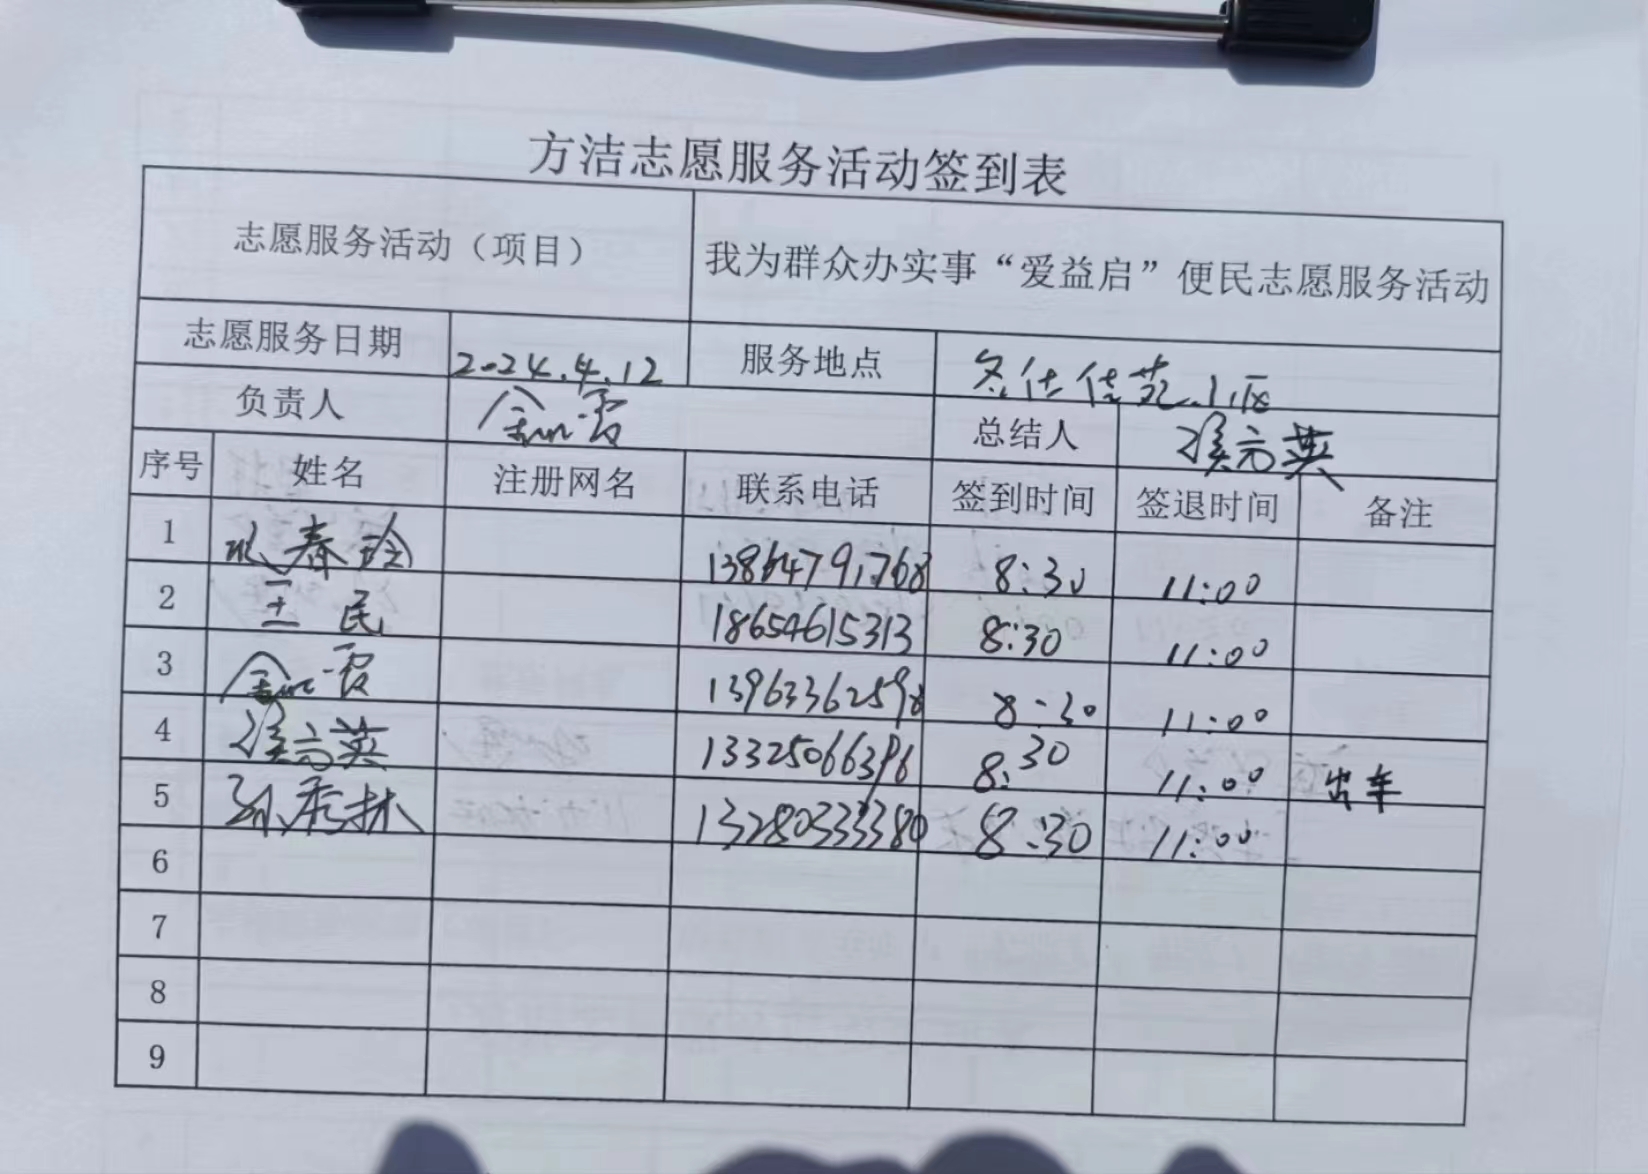 方洁志愿服务活动签到表
志愿服务活动（项目） 我为群众办实事“爱益启”便民志愿服务活动
志愿服务日期 2024.4.12 服务地点 名仕佳苑小区
负责人 总结人 英
序号 姓名 注册网名 联系电话 签到时间 签退时间 备注
1 春玲 13864791768 8:30 11:00
2 王民 18654615313 8:30 11:00
3 13963362598 8:30 11:00
4 英 13325066396 8:30 11:00 出车
5 孙秀林 13280333380 8:30 11:00
6
7
8
9